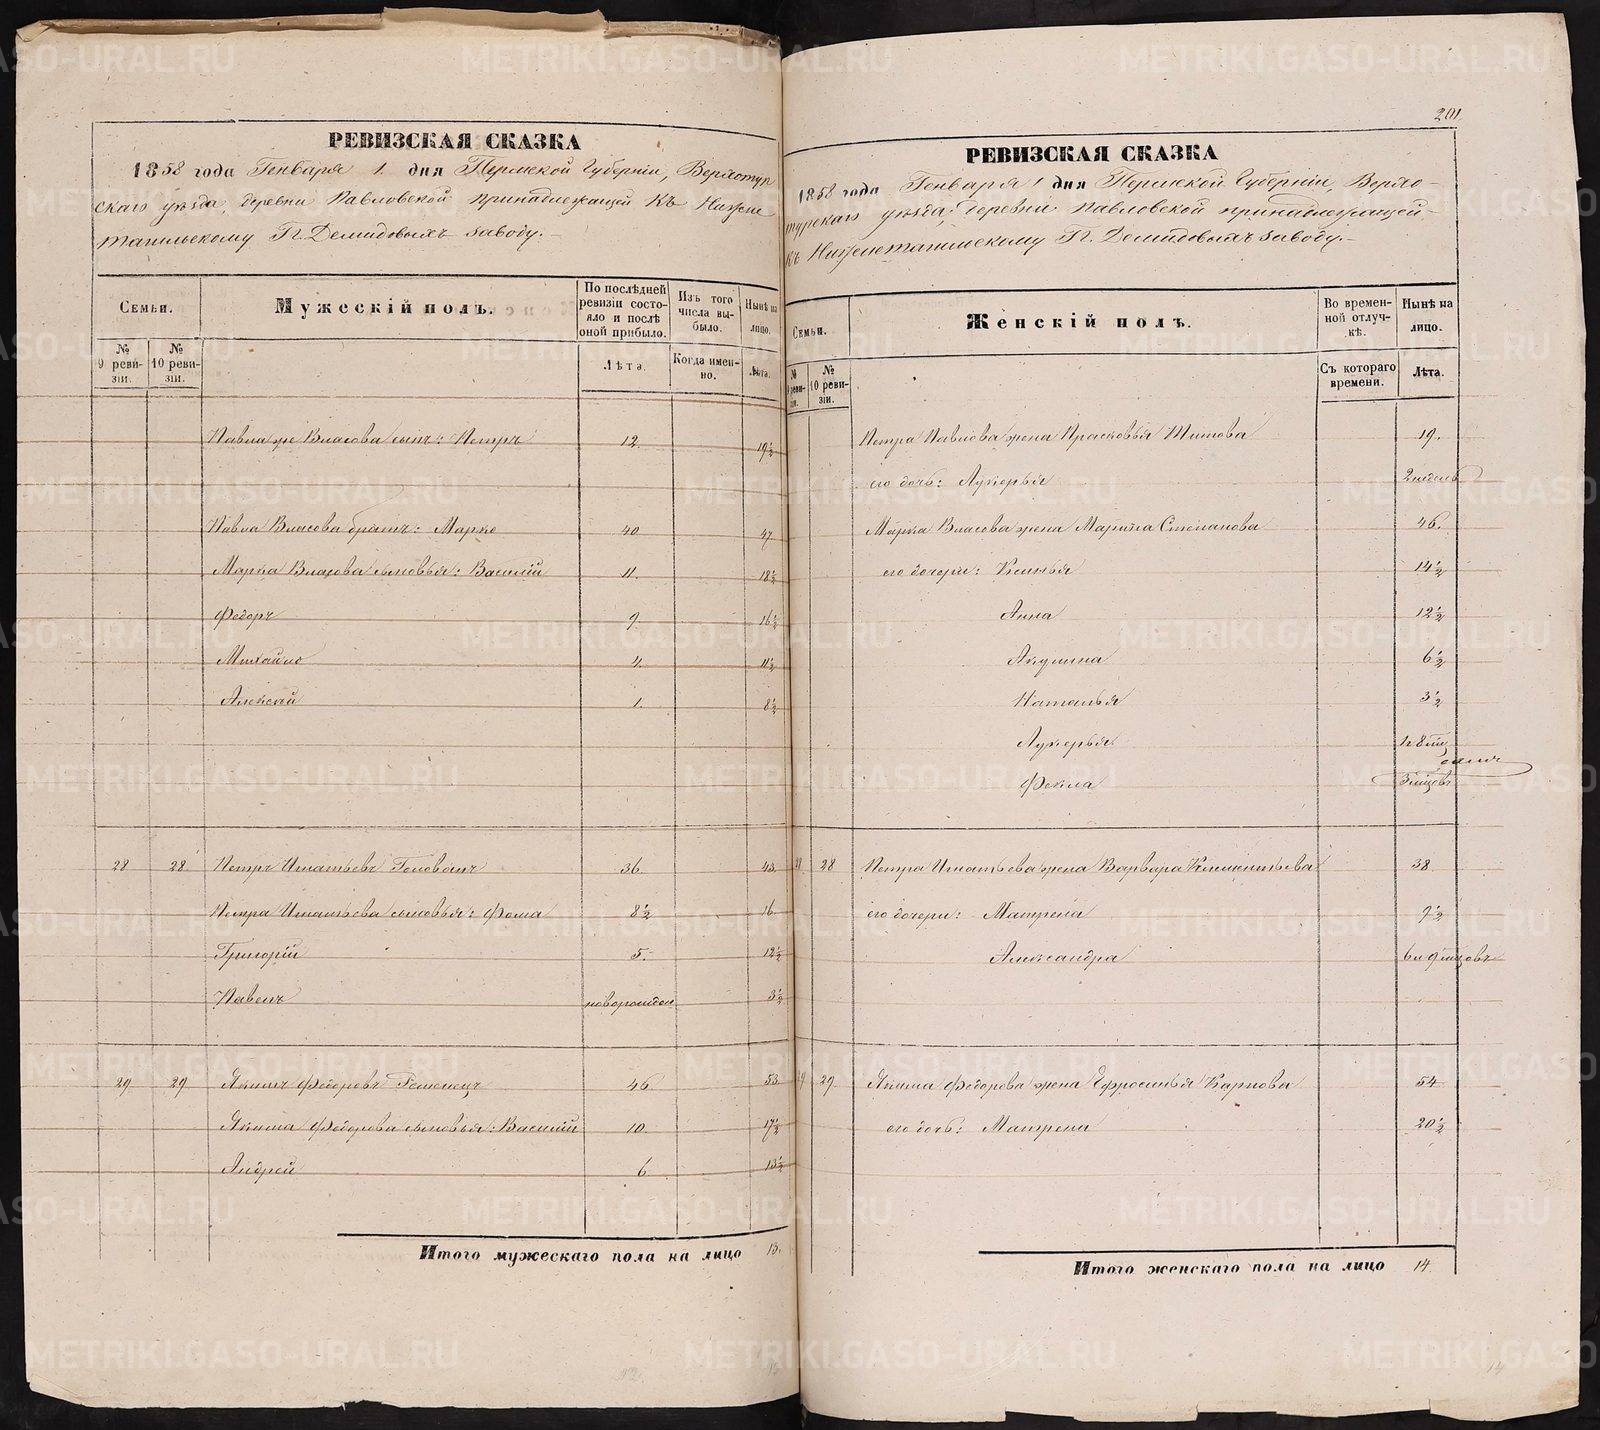 РЕВИЗСКАЯ СКАЗКА
1858 года Генваря 1 дня Пермской Губерніи, Верхотур
скаго уѣзда, деревни Павловской принадлежащей къ Нижне
тагильскому Г.Г. Демидовыхъ заводу.
Семьи.
Мужескій полъ.
По послѣдней ревизіи состояло и послѣ оной прибыло.
Изъ того числа выбыло.
Нынѣ на лицо.
№ 9 ревизіи.
№ 10 ревизіи.
Лѣта.
Когда именно.
Лѣта.
Павла же Власова сынъ: Петръ 12. 19½
Павла Власова братъ: Марко 40 47
Марка Власова сыновья: Василій 11. 18½
Федоръ 9 16½
Михайло 4. 11½
Алексѣй 1. 8½
28 28 Петръ Игнатьевъ 36 43
Петра Игнатьева сыновья: Фома 8½ 16
Григорій 5. 12½
Павелъ новорожден 3½
29 29 Якимъ Федоровъ 46 53
Якима Федорова сыновья: Василій 10. 17½
Андрей 6 13½
Итого мужескаго пола на лицо 13.
201
РЕВИЗСКАЯ СКАЗКА
1858 года Генваря 1 дня Пермской Губерніи, Верхо-
турскаго уѣзда, деревни Павловской принадлежащей
къ Нижнетагильскому Г.Г. Демидовыхъ заводу.
Семьи.
Женскій полъ.
Во временной отлучкѣ.
Нынѣ на лицо.
№ 9 ревизіи.
№ 10 ревизіи.
Съ котораго времени.
Лѣта.
Петра Павлова жена Прасковья Титова 19.
его дочь: Лукерья 2 недель
Марка Власова жена Марина Степанова 46.
его дочери: Ксинья 14½
Анна 12½
Акулина 6½
Наталья 3½
Лукерья
Фекла
28 28 Петра Игнатьева жена Варвара Климентьева 38
его дочери: Матрена 9½
Александра
29 29. Якима Федорова жена Ефросинья Карпова 54
его дочь: Матрена 20½
Итого женскаго пола на лицо 14.
METRIKI.GASO-URAL.RU